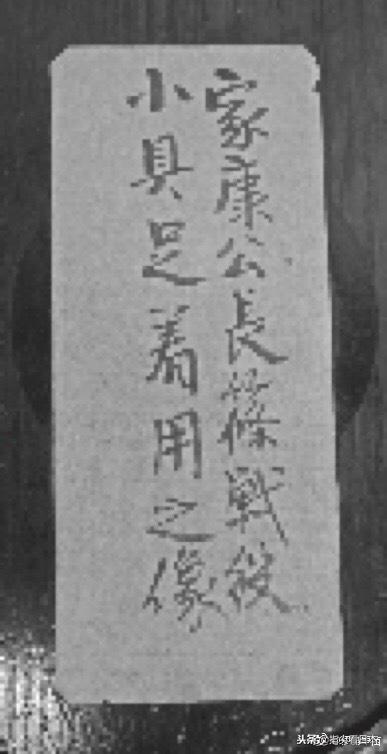 家康公長篠戦役
小具足着用之像